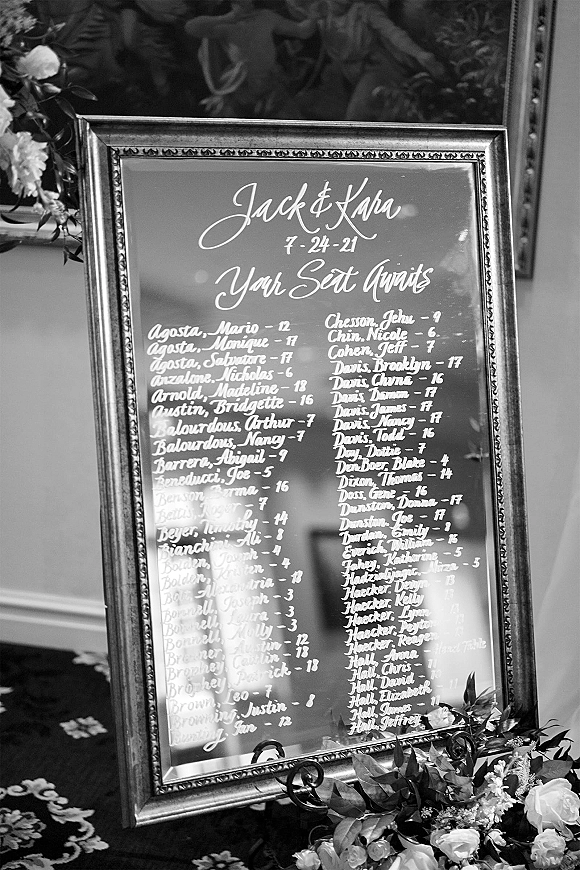 Jack & Kara
7-24-21
Your Seat Awaits
Agosta, Mario - 12
Agosta, Monique - 17
Agosta, Salvatore - 17
Anzalone, Nicholas - 6
Arnold, Madeline - 18
Austin, Bridgette - 16
Balourdous, Arthur - 7
Balourdous, Nancy - 7
Barrera, Abigail - 9
Beneducci, Joe - 5
Benson, - 16
7
Beyer, Timothy - 14
Bianchini, Ali - 8
- 4
- 4
- 18
Bonnell, Joseph - 3
Bonnell, - 3
Bonnell, - 3
- 12
Caitlin - 18
Patrick - 18
Brown, Leo - 7
Browning, Justin - 8
Ian - 12
Chesson, Jehu - 9
Chin, Nicole - 6
Cohen, Jeff - 7
Davis, Brooklyn - 17
Davis, - 16
Davis, Damon - 17
Davis, James - 17
Davis, Nancy - 17
Davis, Todd - 16
Day, Dottie - 7
DenBoer, Blake - 4
Dixon, Thomas - 14
Doss, Gene - 16
Dunston, Donna - 17
Dunston, Joe - 17
Durdan, Emily - 9
Everick, William - 16
Fahey, Katharine - 5
- 5
Haecker, - 13
Haecker, Kelly
Haecker,
Haecker, Peyton
Haecker, Reagen
Hall, Anna - Head Table
Hall, Chris -
Hall, David
Hall, Elizabeth
Hall, James
Hall, Jeffrey